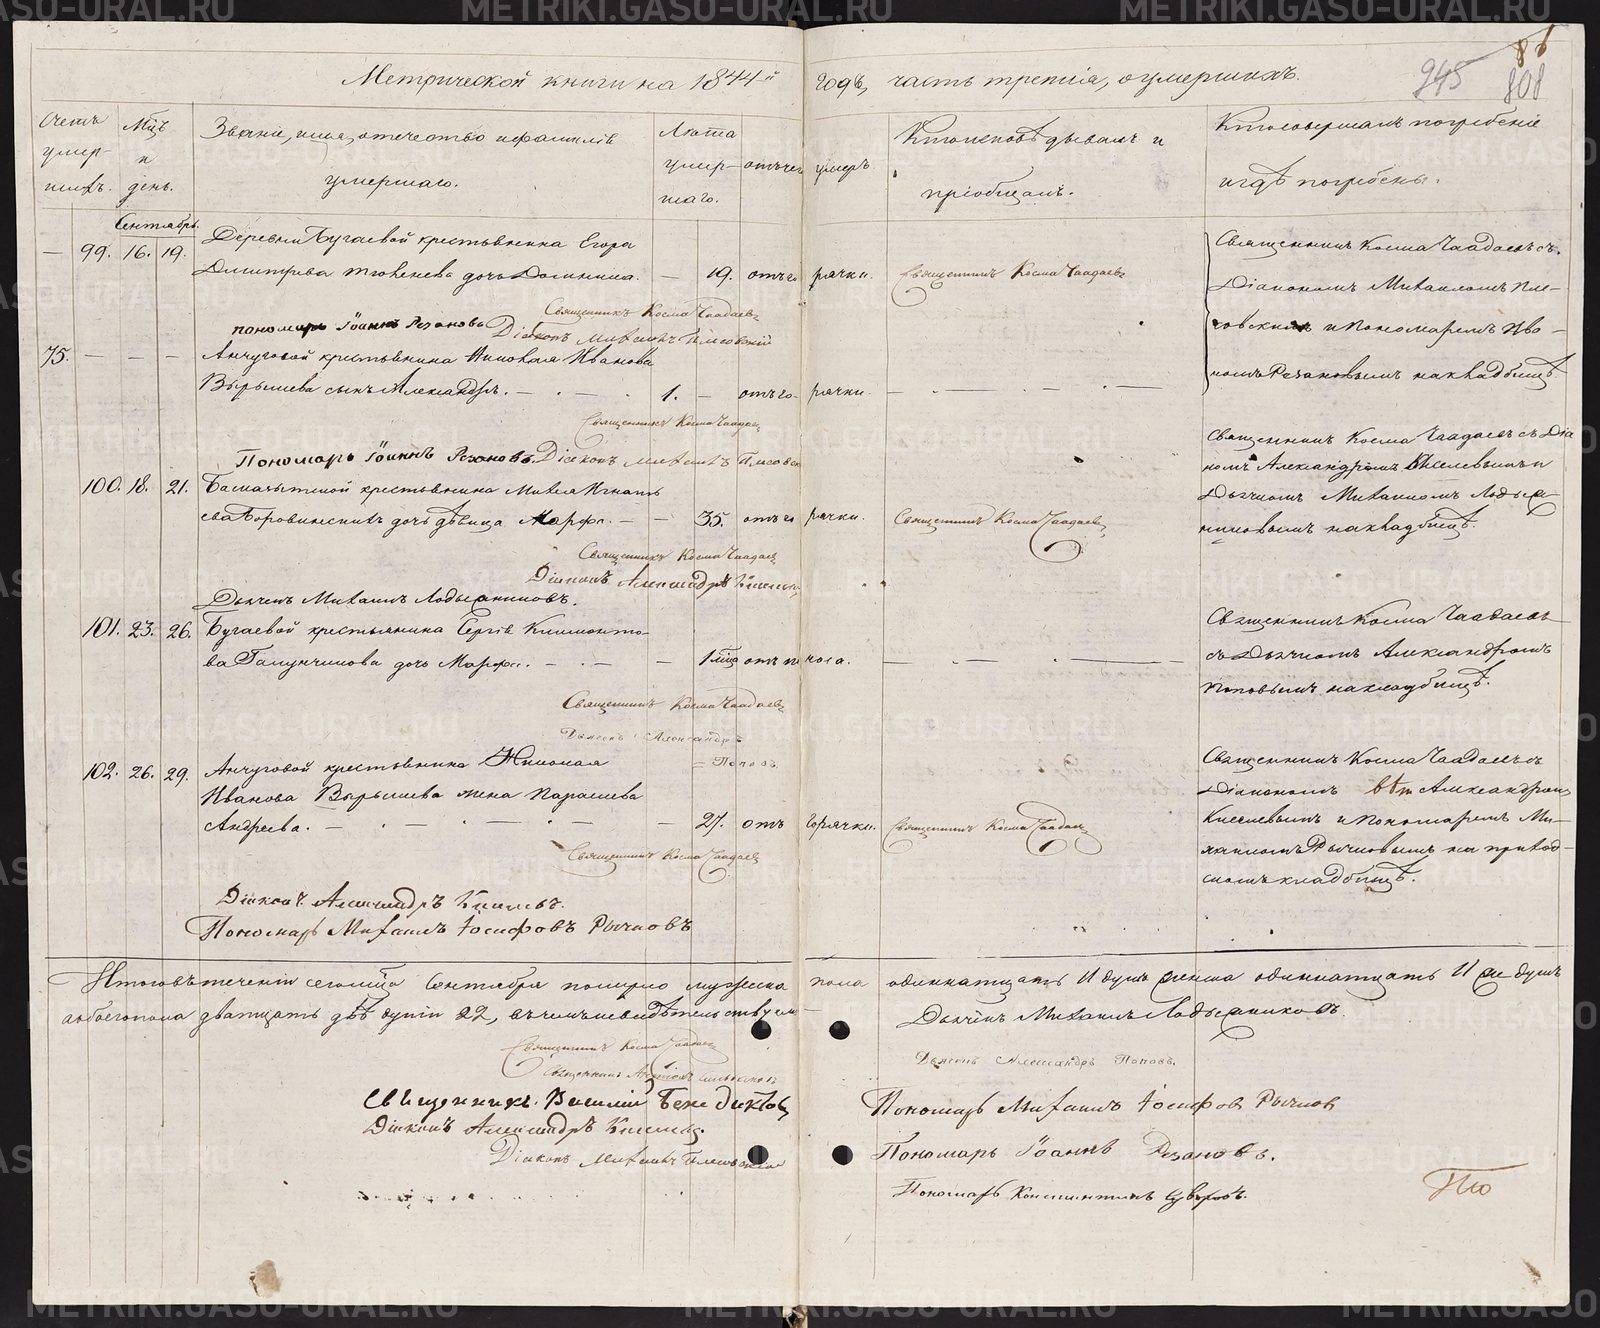 Метрической книги на 1844й годъ, часть третія, о умершихъ.
945
808
Счетъ умер- шихъ.
Мцъ и день.
Званіе, имя, отечество и фамилія
умершаго.
Лѣта умер- шаго.
отъ чего умеръ
Кто исповѣдывалъ и
пріобщалъ.
Кто совершалъ погребеніе
и гдѣ погребены.
Сентябрь.
— 99. 16. 19.
Деревни Бугаевой крестьянина Егора
Дмитріева дочь Домникія. — 19. отъ горячки.
Священникъ Косма Чаадаевъ
Священникъ Косма Чаадаевъ съ
Діакономъ Михаиломъ Пле-
совскимъ и Пономаремъ Ива-
номъ Резановымъ на кладбищѣ.
Священникъ Косма Чаадаевъ
Пономарь Іоаннъ Резановъ Діаконъ Михаилъ Плесовскій
75. — — —
Анчуговой крестьянина Николая Иванова
Вырышева сынъ Александръ. — 1. — отъ горячки.
Священникъ Косма Чаадаевъ
Пономарь Іоаннъ Резановъ. Діаконъ Михаилъ Плесовск
100. 18. 21.
крестьянина Игнать-
ева дочь дѣвица Марфа. — — 35. отъ горячки.
Священникъ Косма Чаадаевъ
Священникъ Косма Чаадаевъ съ Діа
номъ Александромъ Киселевымъ и
Дьячкомъ Михаиломъ Лодыж-
никовымъ на кладбищѣ.
Священникъ Косма Чаадаевъ
Діаконъ Александръ Киселевъ
Дьячекъ Михаилъ
101. 23. 26.
Бугаевой крестьянина Сергія Климонто-
ва дочь Марфа. — 1 мца отъ поноса.
Священникъ Косма Чаадаевъ
съ Дьячкомъ Александромъ
Поповымъ на кладбищѣ.
Священникъ Косма Чаадаевъ
Дьячекъ Александръ
Поповъ
102. 26. 29.
Анчуговой крестьянина Николая
Иванова Вырышева жена Параскева
Андреева. — 27. отъ горячки.
Священникъ Косма Чаадаевъ
Священникъ Косма Чаадаевъ съ
Діакономъ Александромъ
Киселевымъ и Пономаремъ Ми-
хаиломъ Рычковымъ на приход-
скомъ кладбищѣ.
Священникъ Косма Чаадаевъ
Діаконъ Александръ Киселевъ.
Пономарь Михаилъ Іосифовъ Рычковъ
Итого въ теченіи сего мца Сентября померло мужеска пола одиннатцать 11 душъ женска одиннатцать 11 душъ
а обоего пола дватцать двѣ души 22, въ чемъ и свидѣтельствуемъ
Священникъ Косма Чаадаевъ
Священникъ Василій Бенедиктовъ
Діаконъ Александръ Киселевъ.
Діаконъ Михаилъ Плесовскій
Дьячекъ Михаилъ
Дьячекъ Александръ Поповъ.
Пономарь Михаилъ Іосифовъ Рычков
Пономарь Іоаннъ Резановъ.
Пономарь Константинъ
METRIKI.GASO-URAL.RU